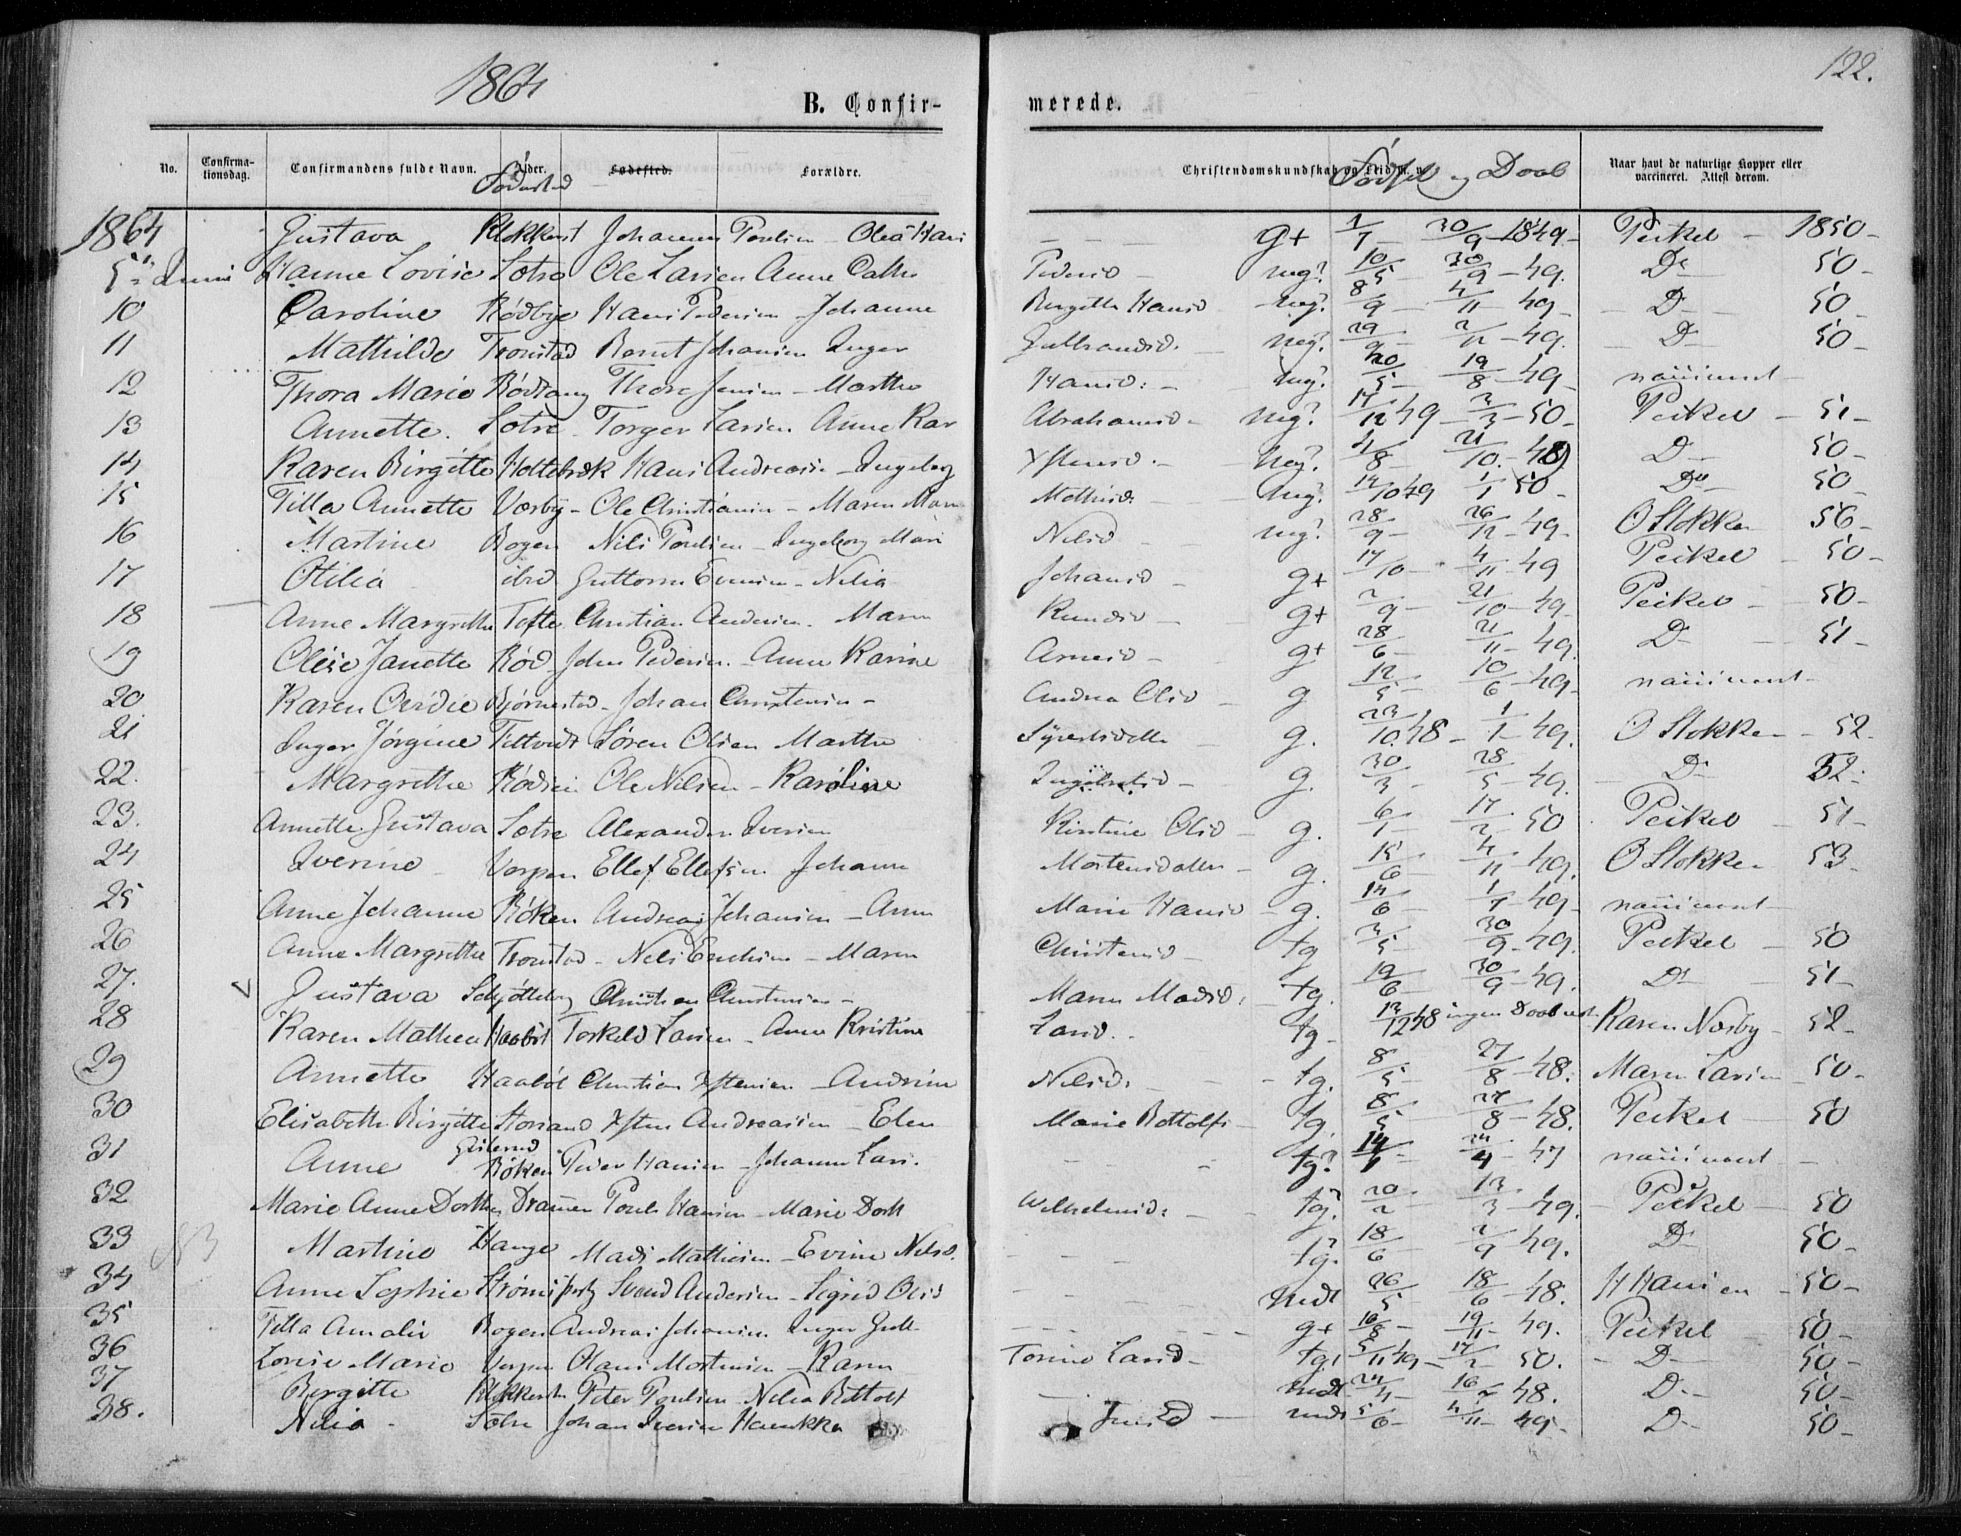 1864
122.
B. Confir-
merede.
No. Confirma-tionsdag. Confirmandens fulde Navn. Alder. Fødested. Forældre. Christendomskundskab og Naar havt de naturlige Kopper eller vaccineret. Attest derom.
Fødested Fødsel og Daab
1864 Gustava Klokkerst Johannes Poulsen - Olea Hans - - g+ 1/7 30/9 1849 - Peikel - 1850 -
5te Juni Hanne Lovise Sætre Ole Larsen Anne Cathr Pedersd - meg? 10/5 - 30/9 - 49. Do 50 -
10 Caroline Rödbye Hans Pedersen - Johanne Birgitte Hansd meg? 8/9 - 4/11 - 49 - D - 50 -
11 Mathilde Tronstad Bernt Johansen Inger Gulbrandsd. - meg? 29/9 - 2/12 - 49. - D - 50 -
12 Thora Marie Rödtang Thore Jensen - Marthe Hansd: - meg? 20/5 - 19/8 - 49 -
13 Annette. Sætre Torger Larsen Anne Kar Abrahamsd - meg? 17/12 49 - 3/3 - 50 - Peikel - 51 -
14 Karen Birgitte Holtebæk Hans Andreasen - Ingeborg meg? 4/8 - 21/10 - 48 D - 50 -
15 Tilla Annette Værby - Ole Christiansen - Maren Mari Mathisd: meg? 14/10 49 1/1 50 - Do 50 -
16 Martine Bogen Nils Poulsen - Ingeborg Mari Nilsd - meg? 28/9 - 26/12 - 49 - O Stokken 56 -
17 Otilia ibid Guttorm Evensen - Nilia Johansd - g+ 17/10 - 4/11 - 49 Peikel - 50 -
18 Anne Margrethe Tofte Christian Andersen. Maren Knudsd - g+ 2/9 - 21/10 - 49 - Peikel - 50 -
19 Olise Janette Röd John Pedersen - Anne Karine Arnesd - g+ 28/6 - 21/11 - 49. D - 51 -
20 Karen Björnstad - Johan Christensen - Andrea Olsd - g 12/5 - 10/6 - 49 -
21 Inger Jörgine Tettvedt Sören Olsen Marthe Syvertsdatter - g. 23/10 48 - 1/1 - 49. O Stokken - 52 -
22. Margrethe Rödsen Ole Nilsen - Karoline - g. 30/3 - 28/5 - 49. - D - 52 -
23. Annette Gustava Sætre Alexander Iversen Kirstine Olsd - g. 6/1 - 17/2 - 50 Peikel - 51 -
24 Iverine - Verpen Ellef Ellefsen Johanne Mortensdatter - g. 15/6 - 4/11 - 49. O Stokken - 53 -
25 Anne Johanne Röken Andreas Johansen - Anne Marie Hansd - g. 14/6 - 1/7 - 49 -
26 Anne Margrethe Tronstad - Nils Erichsen - Maren Christensd - tg 3/5 30/9 - 49. Peikel - 50
27. Gustava Schjötteborg Christian Christensen - Maren Madsd. - tg. 19/6 - 30/9 - 49. D - 51 -
28 Karen Mathea Haaböl Torkild Larsen - Anne Kristine Larsd. - tg - 13/12 48 ingen Daab Karen Næsby - 52 -
29 Annette Haaböl Christian Ystensen - Andrine Nilsd. - tg. 8/5 - 27/8 - 48. Maren Larsen - 50 -
30 Elisabeth Birgitte Storsand Ysten Andreassen - Elen Marie Bottolfs - tg. 8/5 - 27/8 - 48. Peikel - 50
31 Anne Gislerud Röken Peder Hansen - Johanne Lars. - tg? 14/1 - 24/4 - 47
32 Marie Anne Dorthea Drammen Poul Hansen - Marie Dorth Wilhelmsd: - tg. 20/2 - 13/3 - 49. - Peikel - 50
33 Martine Hauge Mads Mathisen - Evine Nilsd. - tg. 18/6 - 2/9 - 49. D - 50 -
34 Anne Sophie Svend Andersen - Sigrid Olsd - mdt 26/5 - 18/6 - 48. H Hansen - 50 -
35 Tilla Amalie Bogen Andreas Johansen. Inger Gulb - g+ 16/8 - 19/11 - 49. Peikel - 50 -
36 Lovise Marie Verpen Olaus Mortensen - Karen Torine Larsd - tg. 5/11 49 - 17/2 - 50. - D - 50 -
37 Birgitte Klokkerst Peter Poulsen - Nilia Bottolf mdt 24/4 - 16/7 - 48. D - 50 -
38. Nilia - Sætre Johan Iversen Henrikka Jensd - mdt 5/6 - 4/11 - 49 - D - 50 -